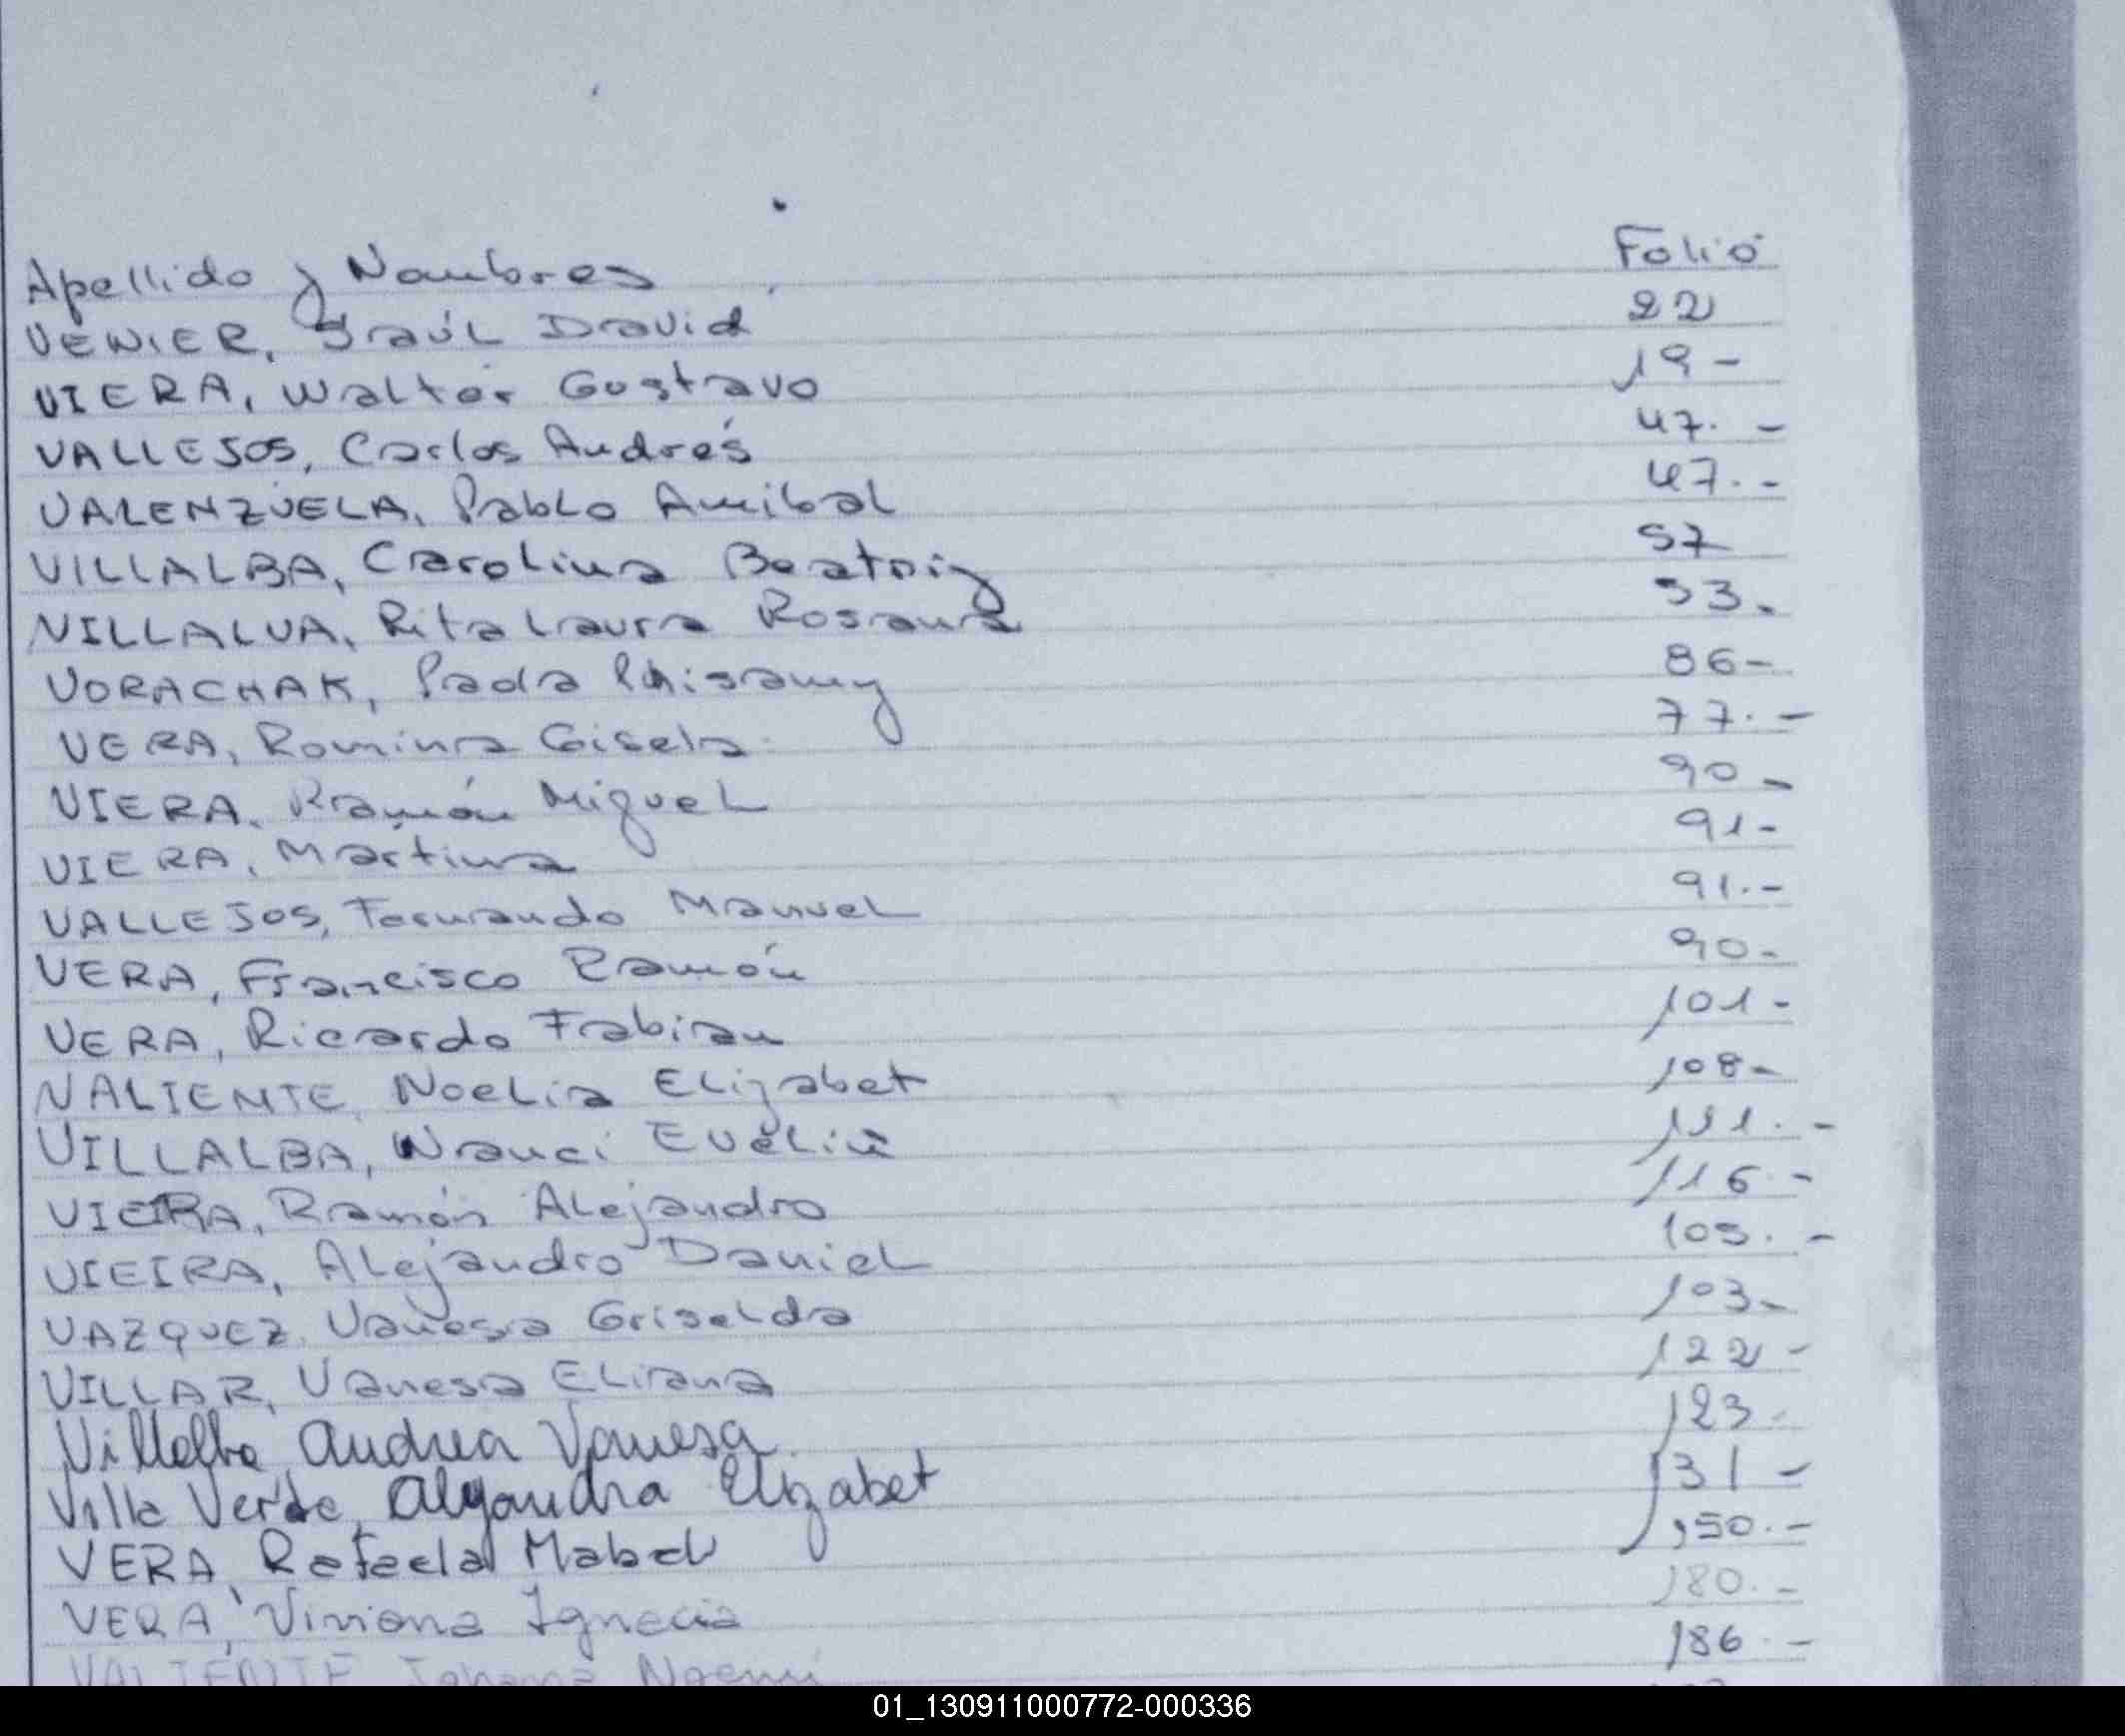 Apellido y Nombres Folio
VENIER, Saúl David 22
VIERA, Walter Gustavo 19-
VALLEJOS, Carlos Andrés 47.-
VALENZUELA, Pablo Anibal 47.-
VILLALBA, Carolina Beatriz 57
VILLALVA, Rita Laura Rosana 53.
VORACHAK, Pada Phisamy 86-
VERA, Romina Gisela 77.-
VIERA, Ramón Miguel 90-
VIERA, Martina 91-
VALLEJOS, Fernando Manuel 91.-
VERA, Francisco Ramón 90-
VERA, Ricardo Fabian 101-
VALIENTE, Noelia Elizabet 108-
VILLALBA, Nanci Evelin 111.-
VIEIRA, Ramón Alejandro 116.-
VIEIRA, Alejandro Daniel 105.-
VAZQUEZ, Vanesa Griselda 103-
VILLAR, Vanesa Eliana 122-
Villalba Andrea Vanesa 123-
Villa Verde, Alejandra Elizabet 131-
VERA, Rafaela Mabel 150.-
VERA, Viviana Ignacia 180.-
VALIENTE Johana Noemi 186.-
01_130911000772-000336